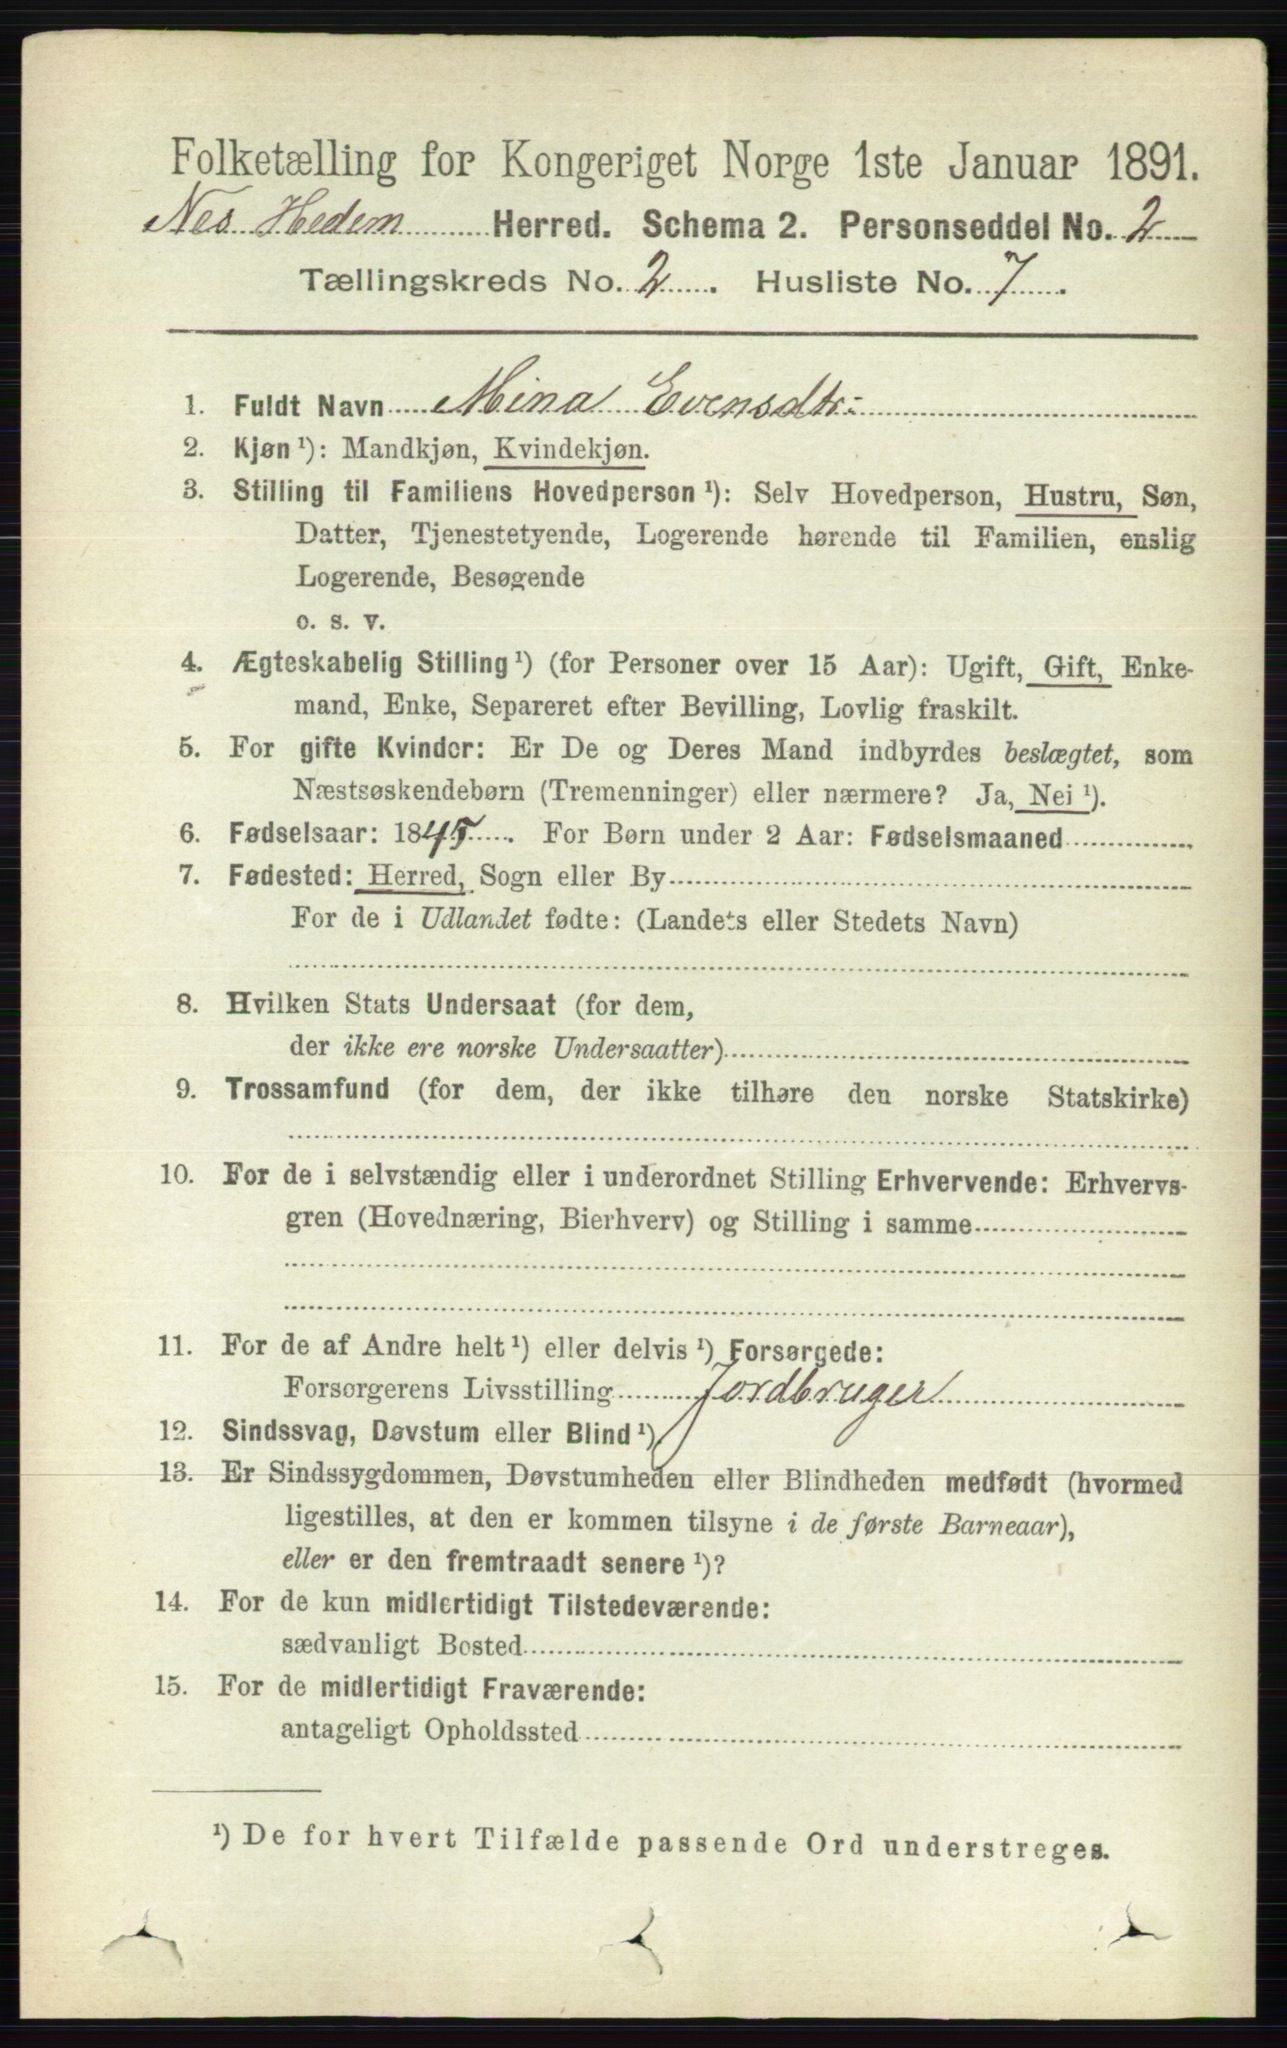 Folketælling for Kongeriget Norge 1ste Januar 1891.
Nes Hedem Herred. Schema 2. Personseddel No. 2
Tællingskreds No. 2. Husliste No. 7.
1. Fuldt Navn Mina Evensdtr:
2. Kjøn ¹): Mandkjøn, Kvindekjøn.
3. Stilling til Familiens Hovedperson ¹): Selv Hovedperson, Hustru, Søn,
Datter, Tjenestetyende, Logerende hørende til Familien, enslig
Logerende, Besøgende
o. s. v.
4. Ægteskabelig Stilling ¹) (for Personer over 15 Aar): Ugift, Gift, Enke-
mand, Enke, Separeret efter Bevilling, Lovlig fraskilt.
5. For gifte Kvinder: Er De og Deres Mand indbyrdes beslægtet, som
Næstsøskendebørn (Tremenninger) eller nærmere? Ja, Nei ¹).
6. Fødselsaar: 1845. For Børn under 2 Aar: Fødselsmaaned
7. Fødested: Herred, Sogn eller By
For de i Udlandet fødte: (Landets eller Stedets Navn)
8. Hvilken Stats Undersaat (for dem,
der ikke ere norske Undersaatter)
9. Trossamfund (for dem, der ikke tilhøre den norske Statskirke)
10. For de i selvstændig eller i underordnet Stilling Erhvervende: Erhvervs-
gren (Hovednæring, Bierhverv) og Stilling i samme
11. For de af Andre helt ¹) eller delvis ¹) Forsørgede:
Forsørgerens Livsstilling Jordbruger
12. Sindssvag, Døvstum eller Blind ¹).
13. Er Sindssygdommen, Døvstumheden eller Blindheden medfødt (hvormed
ligestilles, at den er kommen tilsyne i de første Barneaar),
eller er den fremtraadt senere ¹)?
14. For de kun midlertidigt Tilstedeværende:
sædvanligt Bosted
15. For de midlertidigt Fraværende:
antageligt Opholdssted
¹) De for hvert Tilfælde passende Ord understreges.